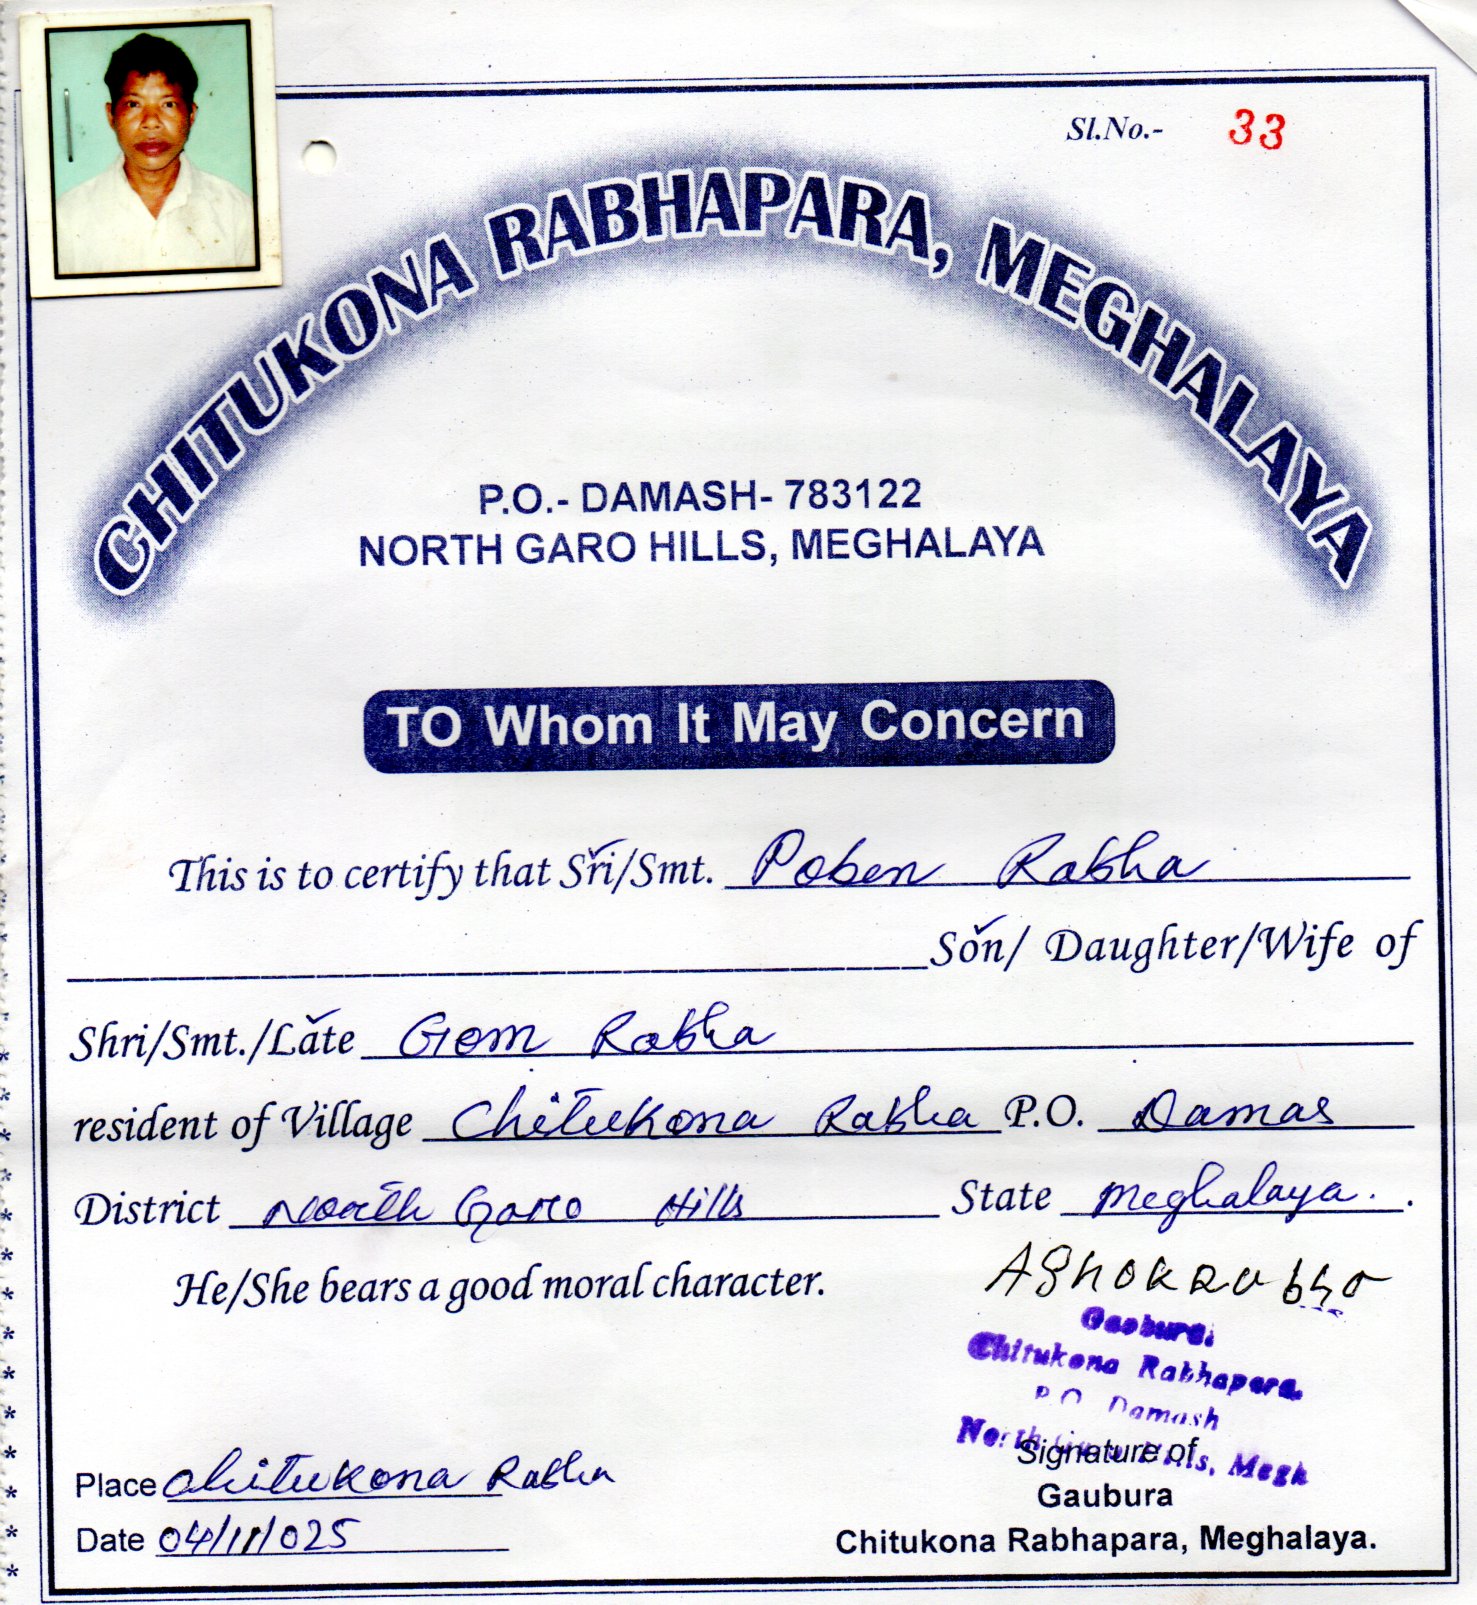 Sl.No.- 33
CHITUKONA RABHAPARA, MEGHALAYA
P.O.- DAMASH- 783122
NORTH GARO HILLS, MEGHALAYA
TO Whom It May Concern
This is to certify that Sri/Smt. Poben Rabha
Son/ Daughter/Wife of
Shri/Smt./Late Gom Rabha
resident of Village Chitukona Rabha P.O. Damas
District North Garo Hills State Meghalaya.
He/She bears a good moral character.
Gaobura.
Chitukona Rabhapara.
P.O. Damash
North Hills, Megh
Signature of
Place Chitukona Rabha
Gaubura
Date 04/11/025
Chitukona Rabhapara, Meghalaya.